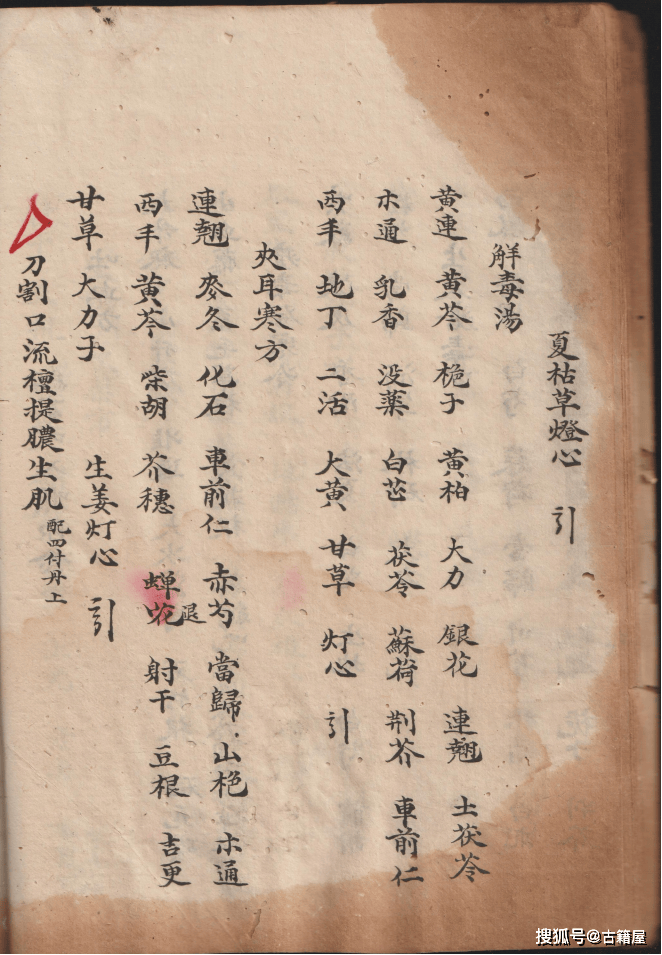 夏枯草燈心 引
解毒湯
黄連 黄芩 梔子 黄柏 大力 銀花 連翹 土茯苓
木通 乳香 没薬 白芷 茯苓 蘇荷 荆芥 車前仁
西手 地丁 二活 大黄 甘草 灯心 引
夾耳寒方
連翹 麥冬 化石 車前仁 赤芍 當歸 山栀 木通
西手 黄芩 柴胡 芥穗 蝉花退 射干 豆根 吉更
甘草 大力子 生姜灯心 引
刀割口流檀提膿生肌 配四付丹上
搜狐号@古籍屋